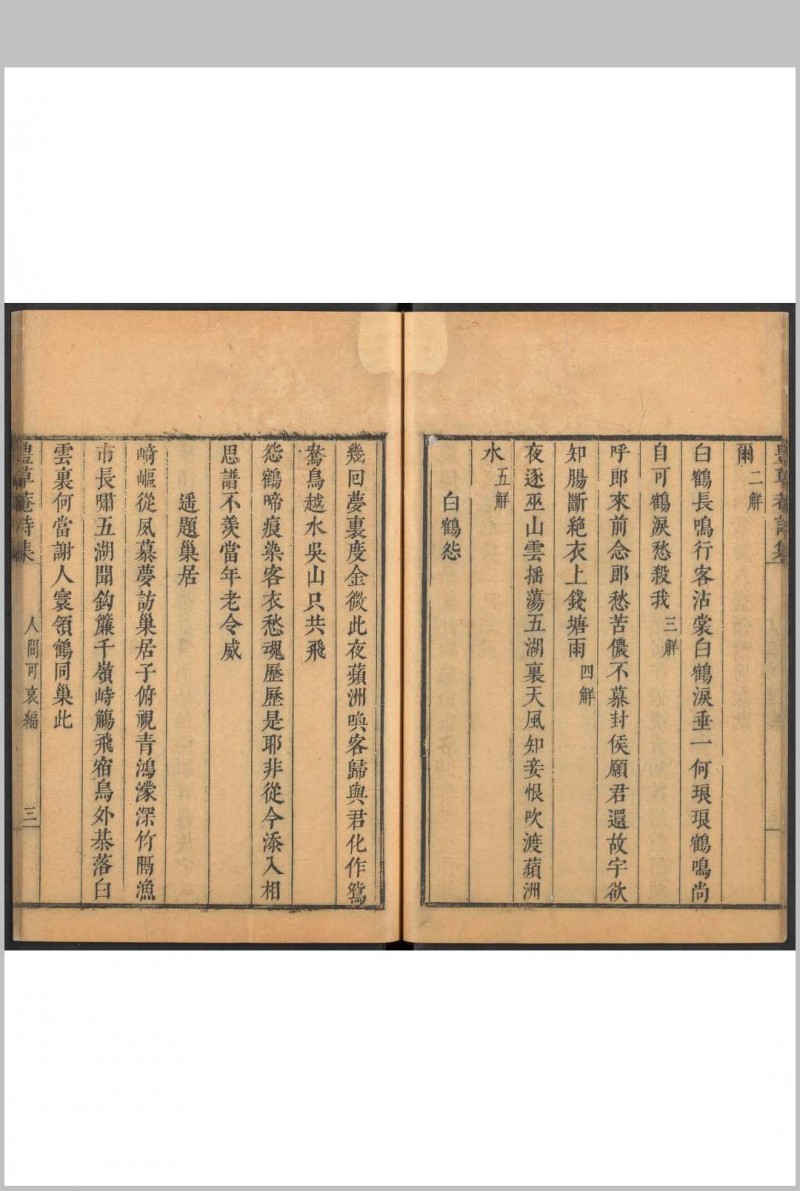 爾二解
白鶴長鳴行客沾裳白鶴淚垂一何琅琅鶴鳴尚
自可鶴淚愁殺我三解
呼郎來前念郎愁苦儂不慕封侯願君還故宇欲
知腸斷絶衣上錢塘雨四解
夜逐巫山雲摇蕩五湖裏天風知妾恨吹渡蘋洲
水五解
白鶴怨
幾回夢裏度金微此夜蘋洲喚客歸與君化作鴛
鴦鳥越水吳山只共飛
怨鶴啼痕染客衣愁魂歷歷是耶非從今添入相
思譜不羨當年老令威
遥題巢居
崎嶇從夙慕夢訪巢居子俯視青鴻濛深竹隔漁
市長嘯五湖聞鈎簾千嶺峙觴飛宿鳥外棊落白
雲裏何當謝人寰領鶴同巢此
豐草菴詩集
人間可哀編
三